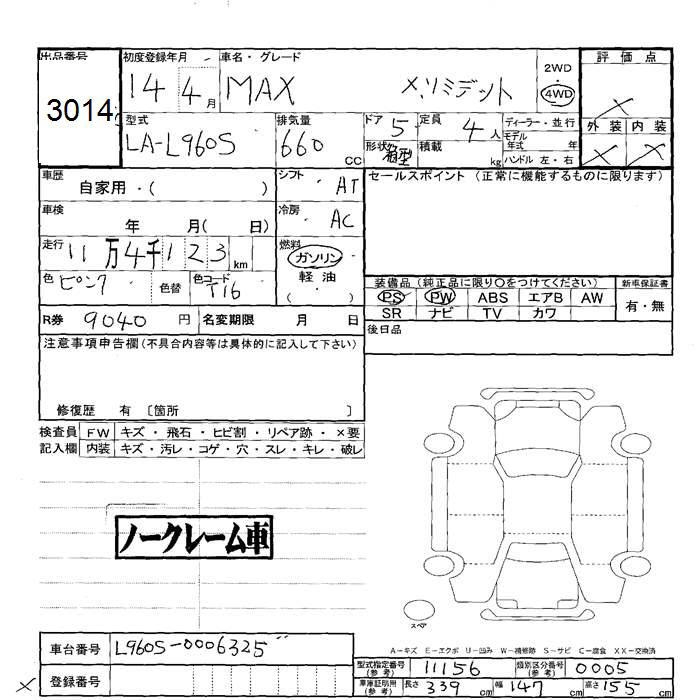 出品番号
3014
初度登録年月
14 4月
車名・グレード
MAX X,リミテッド
2WD
・
4WD
評価点
X
外装 内装
X X
型式
LA-L960S
排気量
660 CC
ドア 5
定員 4人
ディーラー・並行
モデル年式 年
形状 箱型
積載 kg
ハンドル 左・右
車歴
自家用・( )
シフト AT
セールスポイント (正常に機能するものに限ります)
車検
年 月( 日)
冷房 AC
走行
11万4千123km
燃料
ガソリン
軽油
( )
色 ピンク
色替
色コード T16
装備品(純正品に限り〇をつけてください)
新車保証書
PS PW ABS エアB AW
SR ナビ TV カワ
有・無
R券 9040円
名変期限 月 日
後日品
注意事項申告欄(不具合内容等は具体的に記入して下さい)
修復歴 有 〔箇所 〕
検査員
記入欄
FW キズ・飛石・ヒビ割・リペア跡・×要
内装 キズ・汚レ・コゲ・穴・スレ・キレ・破レ
ノークレーム車
スペア
A－キズ E－エクボ U－凹み W－補修跡 S－サビ C－腐食 XX－交換済
車台番号 L960S-0006325
型式指定番号(参考) 11156
類別区分番号(参考) 0005
X
登録番号
車庫証明用(参考) 長さ 339cm 幅 147cm 高さ 155cm